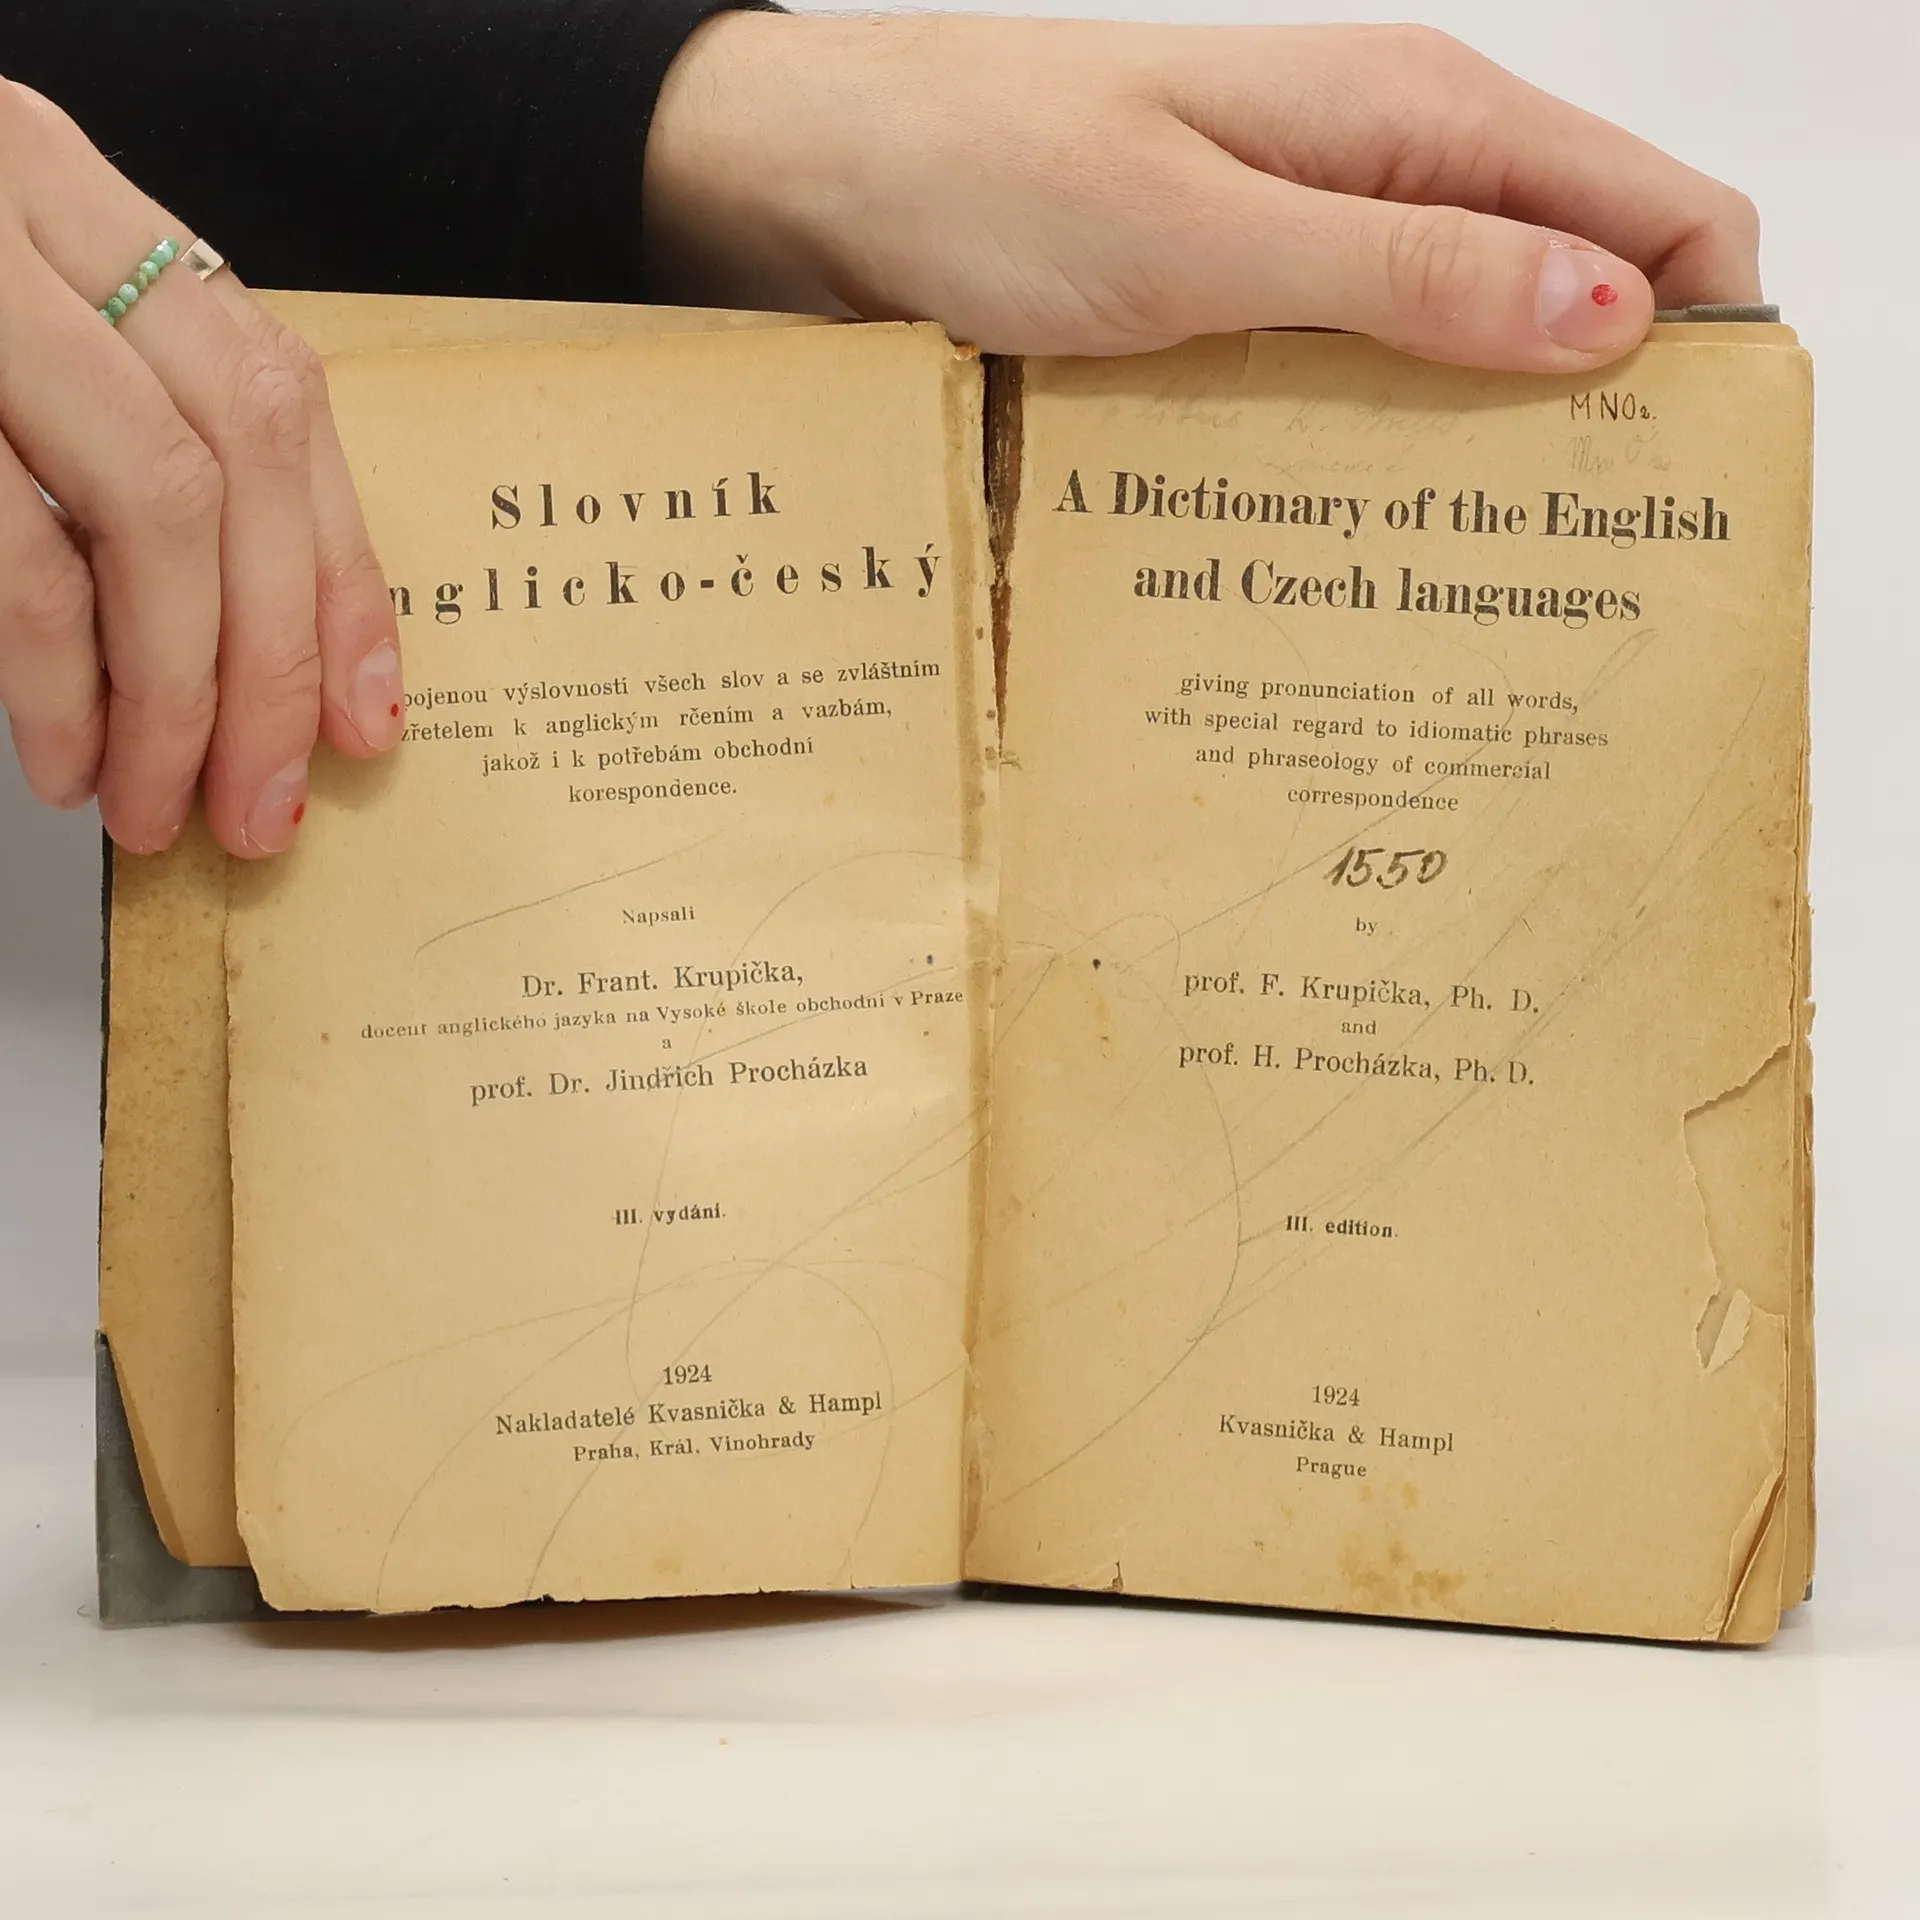 Slovník
nglicko-český
pojenou výslovností všech slov a se zvláštním
zřetelem k anglickým rčením a vazbám,
jakož i k potřebám obchodní
korespondence.
Napsali
Dr. Frant. Krupička,
docent anglického jazyka na Vysoké škole obchodní v Praze
a
prof. Dr. Jindřich Procházka
III. vydání.
1924
Nakladatelé Kvasnička & Hampl
Praha, Král. Vinohrady
MNO2.
A Dictionary of the English
and Czech languages
giving pronunciation of all words,
with special regard to idiomatic phrases
and phraseology of commercial
correspondence
1550
by
prof. F. Krupička, Ph. D.
and
prof. H. Procházka, Ph. D.
III. edition.
1924
Kvasnička & Hampl
Prague